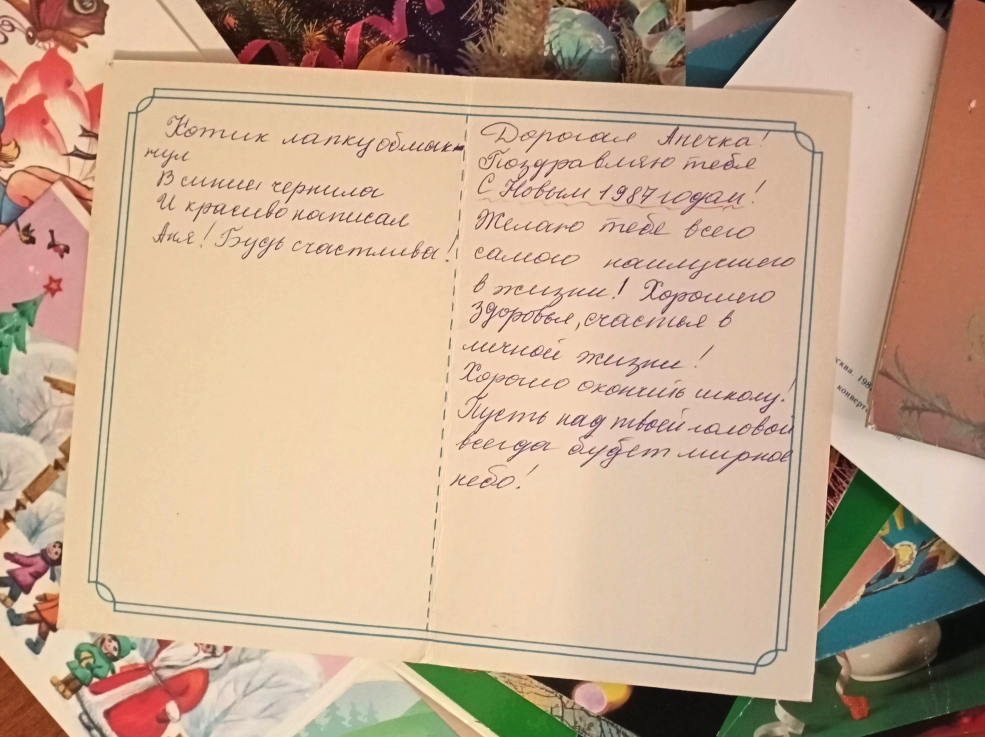 Котик лапку обмак-
нул
В синии чернила
И красиво написал
Аня! Будь счастлива!
Дорогая Анечка!
Поздравляю тебя
С Новым 1987 годом!
Желаю тебе всего
самого наилучшего
в жизни! Хорошего
здоровья, счастья в
личной жизни!
Хорошо окончить школу!
Пусть над твоей головой
всегда будет мирное
небо!
конверт